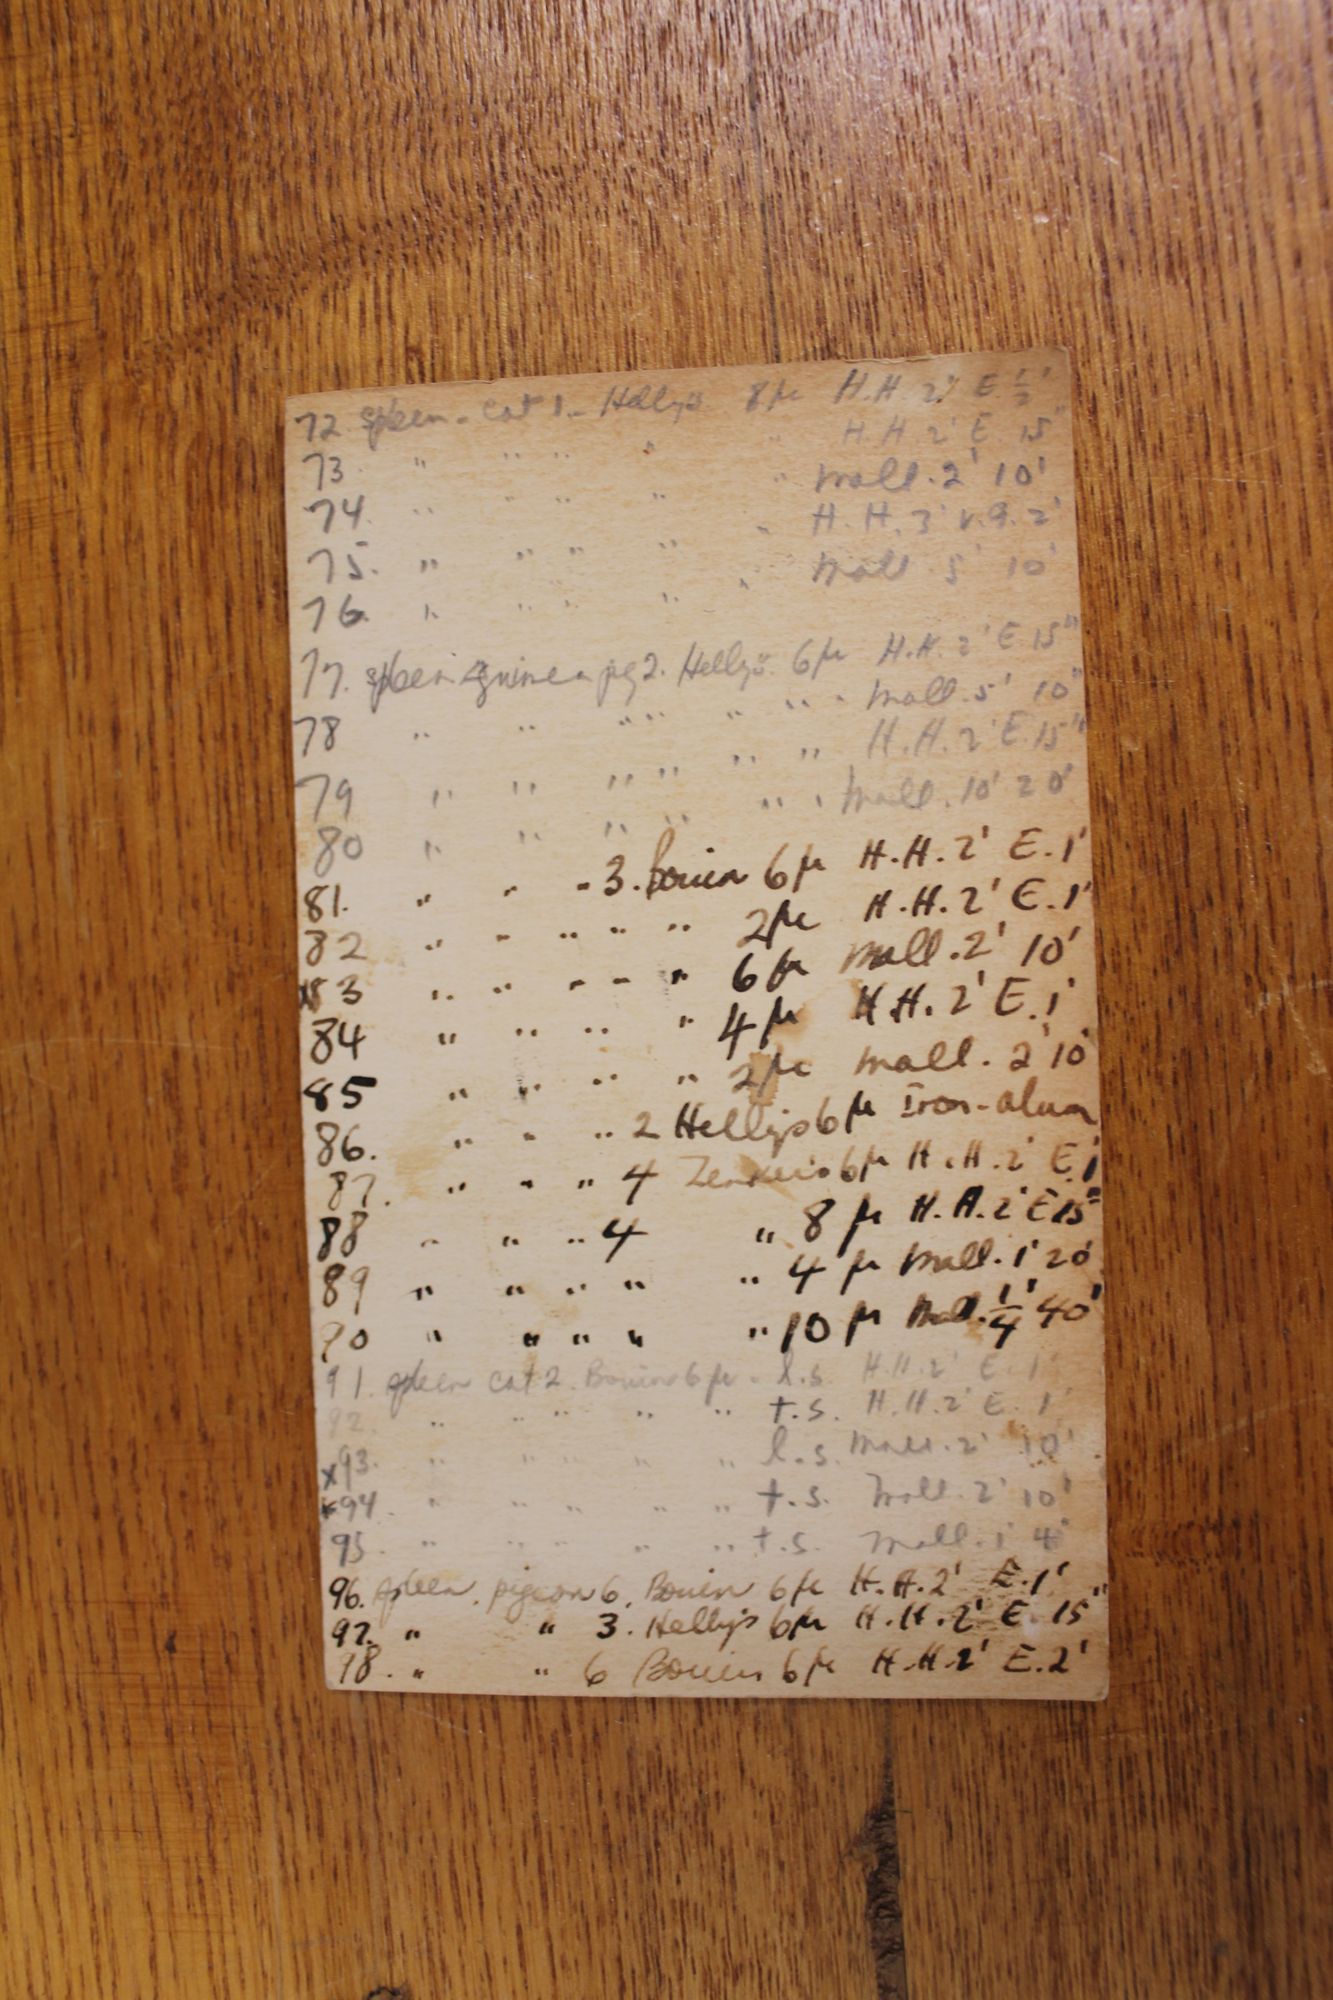 72. spleen - cat 1. - Helly's 8µ H.H. 2' E. ½'
73. " " " " " H.H. 2' E. 15"
74. " " " " " Mall. 2' 10'
75. " " " " " H.H. 3' v.g. 2'
76. " " " " " Mall 5' 10'
77. spleen guinea pig 2. Helly's. 6µ H.H. 2' E 15"
78 " " " " " " " Mall. 5' 10"
79 " " " " " " H.H. 2' E. 15"
80 " " " " " " Mall. 10' 20'
81. " " " 3. Bouin 6µ H.H. 2' E. 1'
82 " " " " " 2µ H.H. 2' E. 1'
x83 " " " " " 6µ Mall. 2' 10'
84 " " " " 4µ H.H. 2' E. 1'
85 " " " " 2µ Mall. 2' 10'
86. " " " 2 Helly's 6µ Iron-alum
87. " " " 4 Zenker's 6µ H.H. 2' E. 1'
88 " " " 4 " 8µ H.H. 2' E 15"
89 " " " " " 4µ Mall. 1' 20'
90 " " " " " 10µ Mall. ¼' 40'
91. spleen cat 2. Bouin 6µ. l.s. H.H. 2' E. 1'
92. " " " " " t.s. H.H. 2' E. 1'
x93. " " " " " l.s. Mall. 2' 10'
x94. " " " " " t.s. Mall. 2' 10'
95. " " " " " t.s. Mall. 1' 4'
96. spleen. pigeon 6. Bouin 6µ H.H. 2' E. 1'
97. " " 3. Helly's 6µ H.H. 2' E 15"
98. " " 6 Bouin 6µ H.H. 2' E. 2'